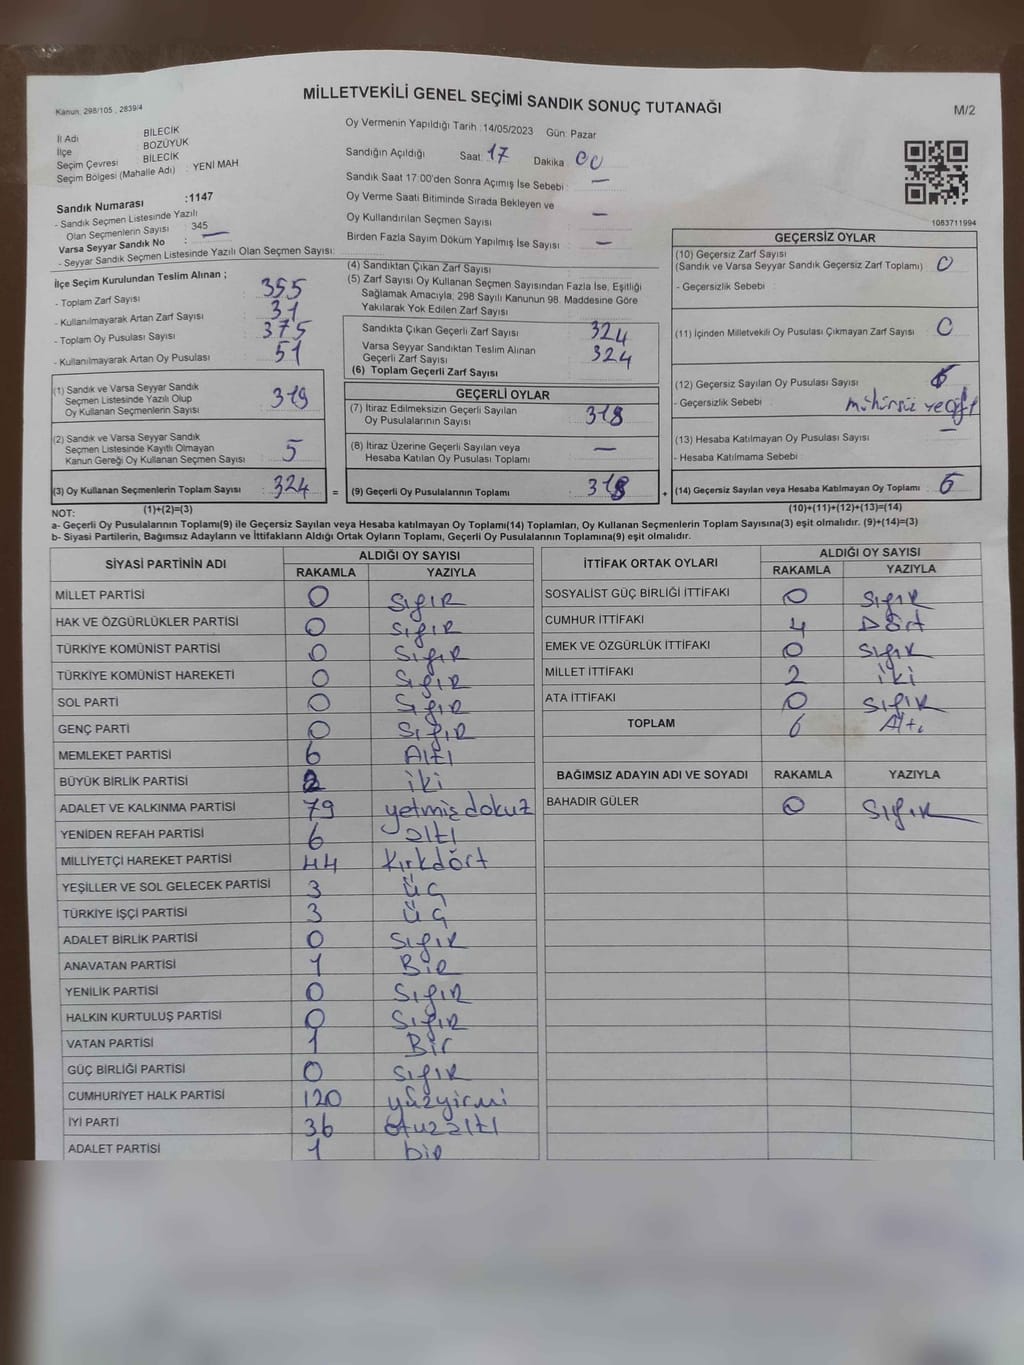 MİLLETVEKİLİ GENEL SEÇİMİ SANDIK SONUÇ TUTANAĞI
M/2
Kanun, 298/105 , 2839/4
İl Adı BİLECİK
İlçe BOZÜYÜK
Seçim Çevresi BİLECİK
Seçim Bölgesi (Mahalle Adı) : YENİ MAH
Sandık Numarası :1147
- Sandık Seçmen Listesinde Yazılı
Olan Seçmenlerin Sayısı : 345
Varsa Seyyar Sandık No : —
- Seyyar Sandık Seçmen Listesinde Yazılı Olan Seçmen Sayısı:
Oy Vermenin Yapıldığı Tarih :14/05/2023 Gün: Pazar
Sandığın Açıldığı Saat: 17 Dakika : 00
Sandık Saat 17:00'den Sonra Açılmış İse Sebebi : —
Oy Verme Saati Bitiminde Sırada Bekleyen ve
Oy Kullandırılan Seçmen Sayısı —
Birden Fazla Sayım Döküm Yapılmış İse Sayısı : —
1063711994
İlçe Seçim Kurulundan Teslim Alınan ;
- Toplam Zarf Sayısı : 355
- Kullanılmayarak Artan Zarf Sayısı : 31
- Toplam Oy Pusulası Sayısı : 375
- Kullanılmayarak Artan Oy Pusulası : 51
(1) Sandık ve Varsa Seyyar Sandık
Seçmen Listesinde Yazılı Olup
Oy Kullanan Seçmenlerin Sayısı : 319
(2) Sandık ve Varsa Seyyar Sandık
Seçmen Listesinde Kayıtlı Olmayan
Kanun Gereği Oy Kullanan Seçmen Sayısı : 5
(3) Oy Kullanan Seçmenlerin Toplam Sayısı : 324
(1)+(2)=(3)
(4) Sandıktan Çıkan Zarf Sayısı :
(5) Zarf Sayısı Oy Kullanan Seçmen Sayısından Fazla İse, Eşitliği
Sağlamak Amacıyla; 298 Sayılı Kanunun 98. Maddesine Göre
Yakılarak Yok Edilen Zarf Sayısı :
Sandıkta Çıkan Geçerli Zarf Sayısı : 324
Varsa Seyyar Sandıktan Teslim Alınan
Geçerli Zarf Sayısı : 324
(6) Toplam Geçerli Zarf Sayısı :
GEÇERLİ OYLAR
(7) İtiraz Edilmeksizin Geçerli Sayılan
Oy Pusulalarının Sayısı : 318
(8) İtiraz Üzerine Geçerli Sayılan veya
Hesaba Katılan Oy Pusulası Toplamı : —
= (9) Geçerli Oy Pusulalarının Toplamı : 318
GEÇERSİZ OYLAR
(10) Geçersiz Zarf Sayısı :
(Sandık ve Varsa Seyyar Sandık Geçersiz Zarf Toplamı) 0
- Geçersizlik Sebebi :
(11) İçinden Milletvekili Oy Pusulası Çıkmayan Zarf Sayısı : 0
(12) Geçersiz Sayılan Oy Pusulası Sayısı : 6
- Geçersizlik Sebebi : mühürsüz ve çift
(13) Hesaba Katılmayan Oy Pusulası Sayısı : —
- Hesaba Katılmama Sebebi :
+ (14) Geçersiz Sayılan veya Hesaba Katılmayan Oy Toplamı : 6
(10)+(11)+(12)+(13)=(14)
NOT:
a- Geçerli Oy Pusulalarının Toplamı(9) ile Geçersiz Sayılan veya Hesaba katılmayan Oy Toplamı(14) Toplamları, Oy Kullanan Seçmenlerin Toplam Sayısına(3) eşit olmalıdır. (9)+(14)=(3)
b- Siyasi Partilerin, Bağımsız Adayların ve İttifakların Aldığı Ortak Oyların Toplamı, Geçerli Oy Pusulalarının Toplamına(9) eşit olmalıdır.
SİYASİ PARTİNİN ADI ALDIĞI OY SAYISI
RAKAMLA YAZIYLA
MİLLET PARTİSİ 0 SIFIR
HAK VE ÖZGÜRLÜKLER PARTİSİ 0 SIFIR
TÜRKİYE KOMÜNİST PARTİSİ 0 SIFIR
TÜRKİYE KOMÜNİST HAREKETİ 0 SIFIR
SOL PARTİ 0 SIFIR
GENÇ PARTİ 0 SIFIR
MEMLEKET PARTİSİ 6 Altı
BÜYÜK BİRLİK PARTİSİ 2 iki
ADALET VE KALKINMA PARTİSİ 79 yetmiş dokuz
YENİDEN REFAH PARTİSİ 6 altı
MİLLİYETÇİ HAREKET PARTİSİ 44 Kırkdört
YEŞİLLER VE SOL GELECEK PARTİSİ 3 üç
TÜRKİYE İŞÇİ PARTİSİ 3 üç
ADALET BİRLİK PARTİSİ 0 SIFIR
ANAVATAN PARTİSİ 1 BİR
YENİLİK PARTİSİ 0 SIFIR
HALKIN KURTULUŞ PARTİSİ 0 SIFIR
VATAN PARTİSİ 1 Bir
GÜÇ BİRLİĞİ PARTİSİ 0 SIFIR
CUMHURİYET HALK PARTİSİ 120 yüzyirmi
İYİ PARTİ 36 otuzaltı
ADALET PARTİSİ 1 bir
İTTİFAK ORTAK OYLARI ALDIĞI OY SAYISI
RAKAMLA YAZIYLA
SOSYALİST GÜÇ BİRLİĞİ İTTİFAKI 0 SIFIR
CUMHUR İTTİFAKI 4 Dört
EMEK VE ÖZGÜRLÜK İTTİFAKI 0 SIFIR
MİLLET İTTİFAKI 2 iki
ATA İTTİFAKI 0 SIFIR
TOPLAM 6 Altı
BAĞIMSIZ ADAYIN ADI VE SOYADI RAKAMLA YAZIYLA
BAHADIR GÜLER 0 SIFIR